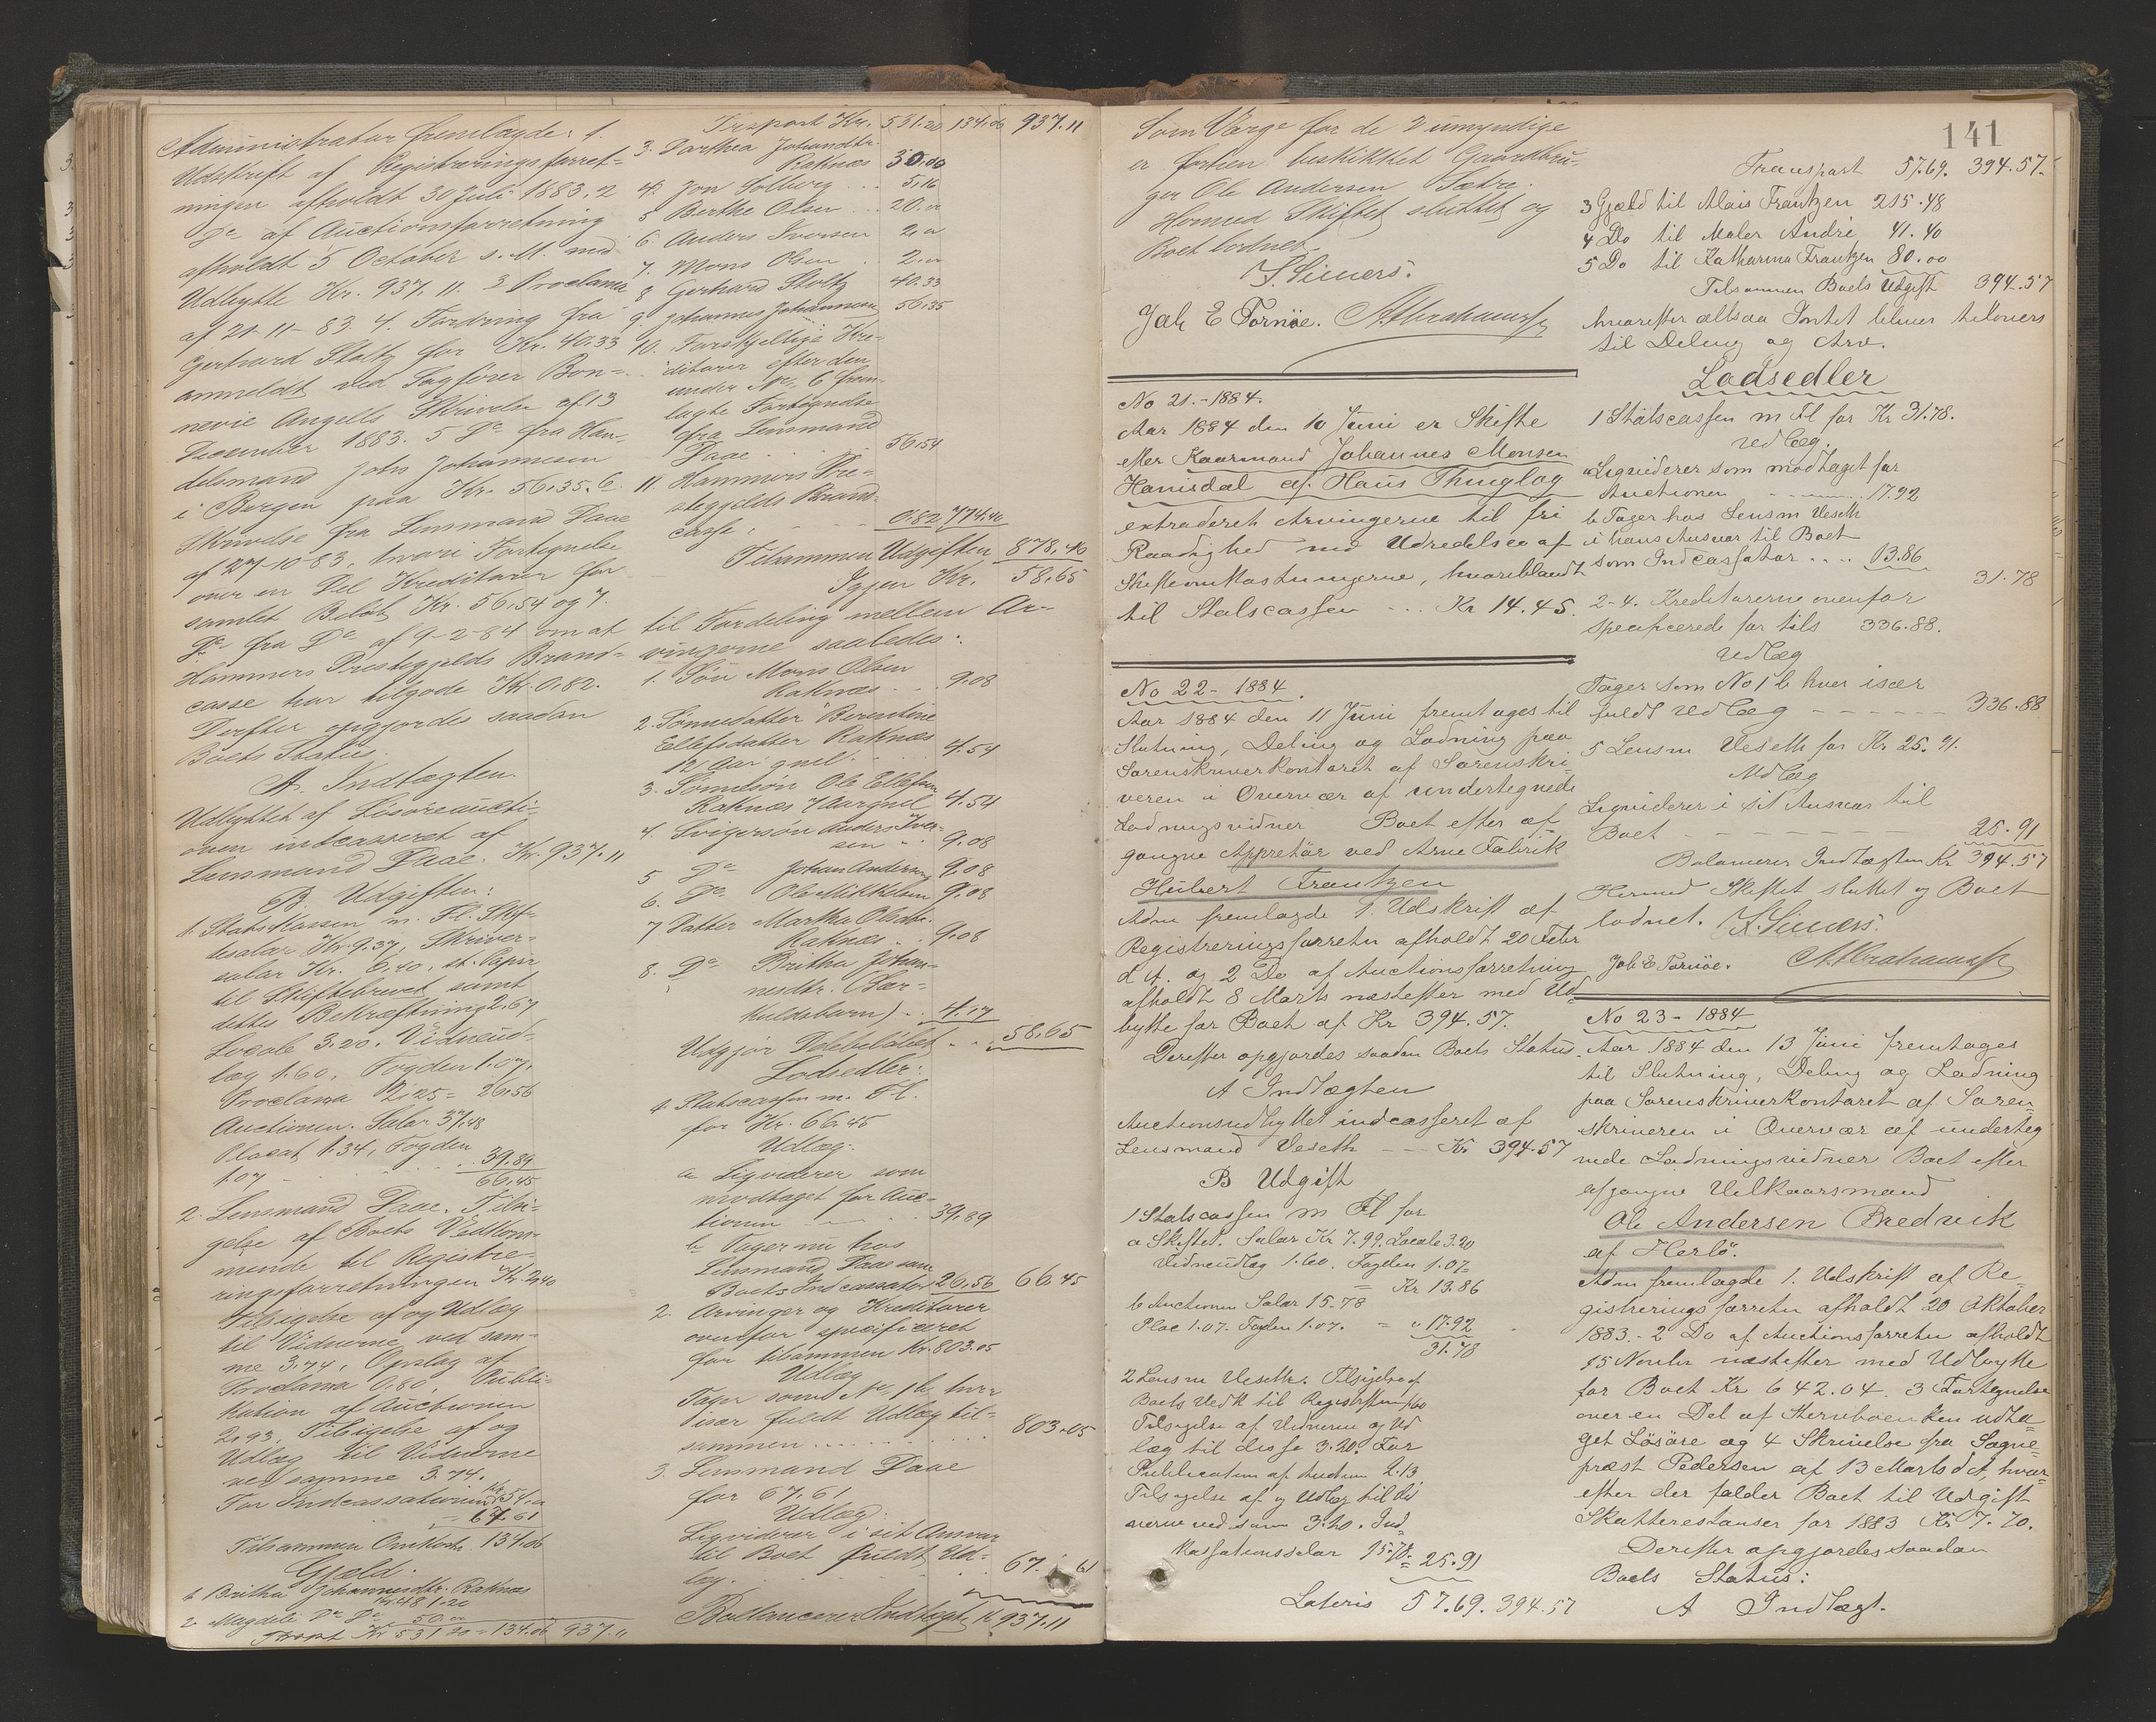 Administrator fremlagde: 1.
Udskrift af Registreringsforret-
ningen afholdt 30 Juli 1883, 2
Do af Auctionsforretning
afholdt 5 October s. A. med
Udbytte Kr. 937.11. 3 Proclama
af 21-11-83. 4. Fordring fra
Gerhard Stoltz for Kr. 40.33
anmeldt ved Sagfører Bon-
nevie Angells Skrivelse af 13
December 1883. 5 Do fra Han-
delsmand Johs Johannesen
i Bergen paa Kr. 56.35. 6.
Skrivelse fra Lensmand Daae
af 27-10-83, hvori Fortegnelse
over en Del Kreditorer for
samlet Beløb Kr. 56.54 og 7.
Do fra Do af 9-2-84 om at
Hammers Præstegjelds Brand-
casse har tilgode Kr. 0.82.
Derefter opgjordes saadan
Boets Status.
A. Indtægten
Udbyttet af Løsøreaucti-
onen indcasseret af
Lensmand Daae. Kr. 937.11
B. Udgiften:
1. Statskassen m. Fl. Skif-
tesalær Kr. 9.37, Skriver-
salær Kr. 6.40, st. Papir
til Skiftebrevet samt
dettes Bekræftning 2.67
Locale 3.20. Vidneud-
læg 1.60, Fogden 1.07,
Proclama 2.25 = 26.56
Auctionen. Salær 37.48
Placat 1.34, Fogden
1.07 - 39.89
66.45
2. Lensmand Daae. Tilsi-
gelse af Boets Vedkom-
mende til Registre-
ringsforretningen Kr. 2.40
Tilsigelse af og Udlæg
til Vidnerne ved sam-
me 3.74, Opslag af
Proclama 0.80, Publi-
kation af Auctionen
2.93, Tilsigelse af og
Udlæg til Vidnerne
ved samme 3.74.
For Indcassationen Kr. 54.00
= 67.61
Tilsammen Omkostn. 134.06
Gjæld.
1. Britha Johannesdtr. Raknæs
Kr. 481.20
2. Magdeli Do Do 50.00
Trsport Kr 531.20 = 134.06 937.11
Trsport Kr. 531.20 134.06 937.11
3. Dorthea Johansdtr.
Raknæs 30.00
4. Jon Solberg ... 5.16
5 Berthe Olsen ... 20.00
6. Anders Iversen 2.00
7. Mons Olsen .. 2.00
8 Gerhard Stoltz 40.33
9. Johannes Johannesen 56.35
10. Forskjellige Kre-
ditorer efter den
under No 6 frem-
lagte Fortegnelse
fra Lensmand
Daae ... 56.54
11. Hammers Præ-
stegjelds Brand-
casse, - - - 0.82 744.40
Tilsammen Udgiften 878.46
Igjen Kr. 58.65
til Fordeling mellem Ar-
vingerne saaledes:
1. Søn Mons Olsen
Raknæs .. 9.08
2. Sønnedatter Berentine
Ellefsdatter Raknæs
12 Aar gml. .. 4.54
3. Sønnesøn Ole Ellefsen
Raknæs 7 Aar gml 4.54
4. Svigersøn Anders Iver-
sen .. 9.08
5 Do Johan Andersen 9.08
6. Do Ole Mikkelsen 9.08
7 Datter Martha Olsdtr.
Raknæs .. 9.08
8. Do Britha Johan-
nesdtr. (Sær-
kuldsbarn) .. 4.17
Udgjør Delebeløbet .. 58.65
Lodsedler:
1. Statscassen m. Fl.
for Kr. 66.45
Udlæg:
a Ligviderer som
modtaget for Auc-
tionen .. 39.89
b. Tager nu hos
Lensmand Daae som
Boets Indcassator 26.56 66.45
2. Arvinger og Kreditorer
ovenfor specificeret
for tilsammen Kr. 803.05
Udlæg
Tager som No 1 b. hver
især fuldt Udlæg til-
sammen .......... 803.05
3. Lensmand Daae
for 67.61
Udlæg:
Ligviderer i sit Ansvar
til Boet fuldt Ud-
læg. ... 67.61
Ballancerer Indtægt. Kr. 937.11
Som Værge for de 2 umyndige
er forhen beskikket Gaardbru-
ger Ole Andersen Sætre.
Hermed Skiftet sluttet og
Boet lodnet.
Jak E Tornöe. A. Abrahamsen
No 21.-1884.
Aar 1884 den 10 Juni er Skifte
efter Kaarmand Johannes Monsen
Hanisdal af Haus Thinglag
extraderet Arvingerne til fri
Raadighed med Udredelse af
Skifteomkostningerne, hvoriblandt
til Statscassen ... Kr 14.45.
No 22- 1884.
Aar 1884 den 11 Juni fremtages til
Slutning, Deling og Lodning paa
Sorenskriverkontoret af Sorenskri-
veren i Overvær af undertegnede
Lodningsvidner Boet efter af-
gangne Appretør ved Arne Fabrik
Hubert Frantzen
Adm fremlagde 1. Udskrift af
Registreringsforretn afholdt 20 Febr
d A. og 2 Do af Auctionsforretning
afholdt 8 Marts næstefter med Ud-
bytte for Boet af Kr 394.57.
Derefter opgjordes saadan Boets Status.
A Indtægten
Auctionsudbyttet indcasseret af
Lensmand Veseth - - - Kr 394.57
B Udgift
1 Statscassen m Fl for
a Skiftet. Salær Kr 7.99. Locale 3.20
Vidneudlæg 1.60. Fogden 1.07 =
Kr 13.86
b Auctionen Salær 15.78
Plac 1.07. Fogden 1.07. = " 17.92
31.78
2 Lensm Veseth. Tilsigelse af
Boets Vedk til Registreftn 1.60
Tilsigelse af Vidnerne og Ud
læg til disse 3.20. For
Publication af Auction 2.13
Tilsigelse af og Udlæg til Vid
nerne ved samme 3.20. Ind-
kassationssalær 15.78 = 25.91
Lateris 57.69. 394.57
141
Transport 57.69. 394.57-
3 Gjæld til Alois Frantzen 215.48
4 Do til Maler André 41.40
5 Do til Katharina Frantzen 80.00
Tilsammen Boets Udgift 394.57
hvorefter altsaa Intet bliver tilovers
til Deling og Arv.
Lodsedler
1 Statscassen m Fl for Kr 31.78.
Udlæg.
a Ligviderer som modtaget for
Auctionen ------- 17.92
b Tager hos Lensm Veseth
i hans Ansvar til Boet
som Indcassator .... 13.86
31.78
2-4. Kreditorerne ovenfor
specificerede for tils 336.88.
Udlæg
Tager som No 1 b hver især
fuldt Udlæg ------ 336.88
5 Lensm Veseth for Kr 25.91.
Udlæg
Ligviderer i sit Ansvar til
Boet ------- 25.91
Balancerer Indtægten Kr 394.57
Hermed Skiftet sluttet og Boet
lodnet.
Jak E Tornöe. A. Abrahamsen
No 23- 1884
Aar 1884 den 13 Juni fremtages
til Slutning, Deling og Lodning
paa Sorenskriverkontoret af Soren-
skriveren i Overvær af underteg
nede Lodningsvidner Boet efter
afgangne Vilkaarsmand
Ole Andersen Bredvik
af Herlö.
Adm fremlagde 1. Udskrift af Re-
gistreringsforretn afholdt 20 Oktober
1883. - 2 Do af Auctionsforretn afholdt
15 Novbr næstefter med Udbytte
for Boet Kr 642.04. 3 Fortegnelse
over en Del af Stervboenken udta-
get Løsøre og 4 Skrivelse fra Sogne-
præst Pedersen af 13 Marts d A, hvor-
efter der falder Boet til Udgift
Skatterestanser for 1883 Kr 7.70.
Derefter opgjordes saadan
Boets Status:
A Indtægt.